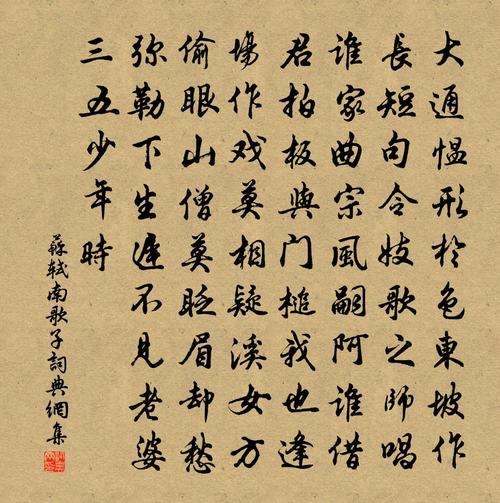 大通愠形於色東坡作
長短句令妓歌之師唱
誰家曲宗風嗣阿誰借
君拍板與門槌我也逢
場作戲莫相疑溪女方
偷眼山僧莫眨眉却愁
弥勒下生遲不見老婆
三五少年時
蘇軾南歌子詞典網集